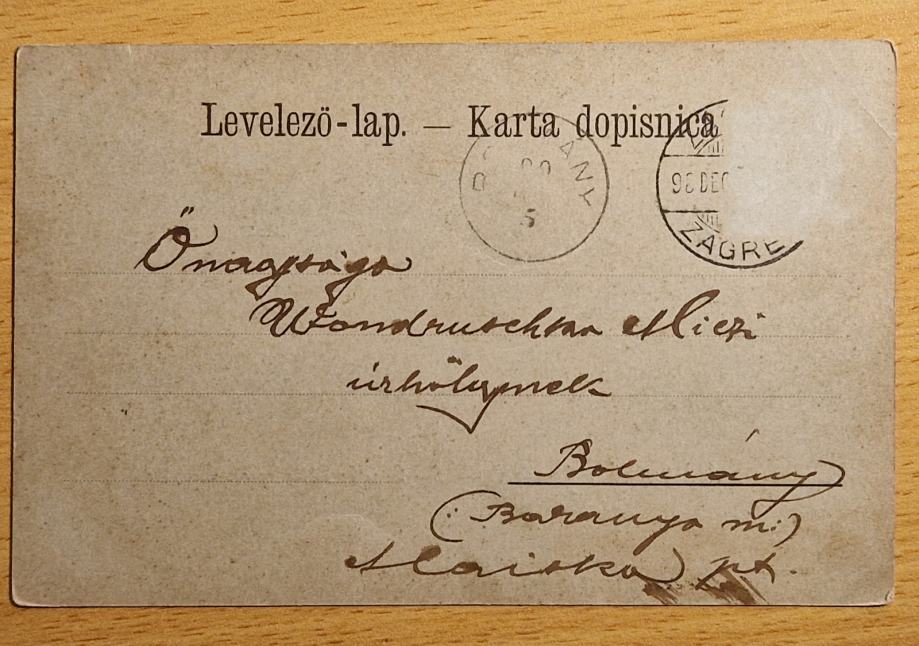 Levelező-lap. — Karta dopisnica
98 DEC
ZAGRE
5
Őnagysága
Wondruschka Miczi
úrhölgynek
Bolmány
(: Baranya m:)